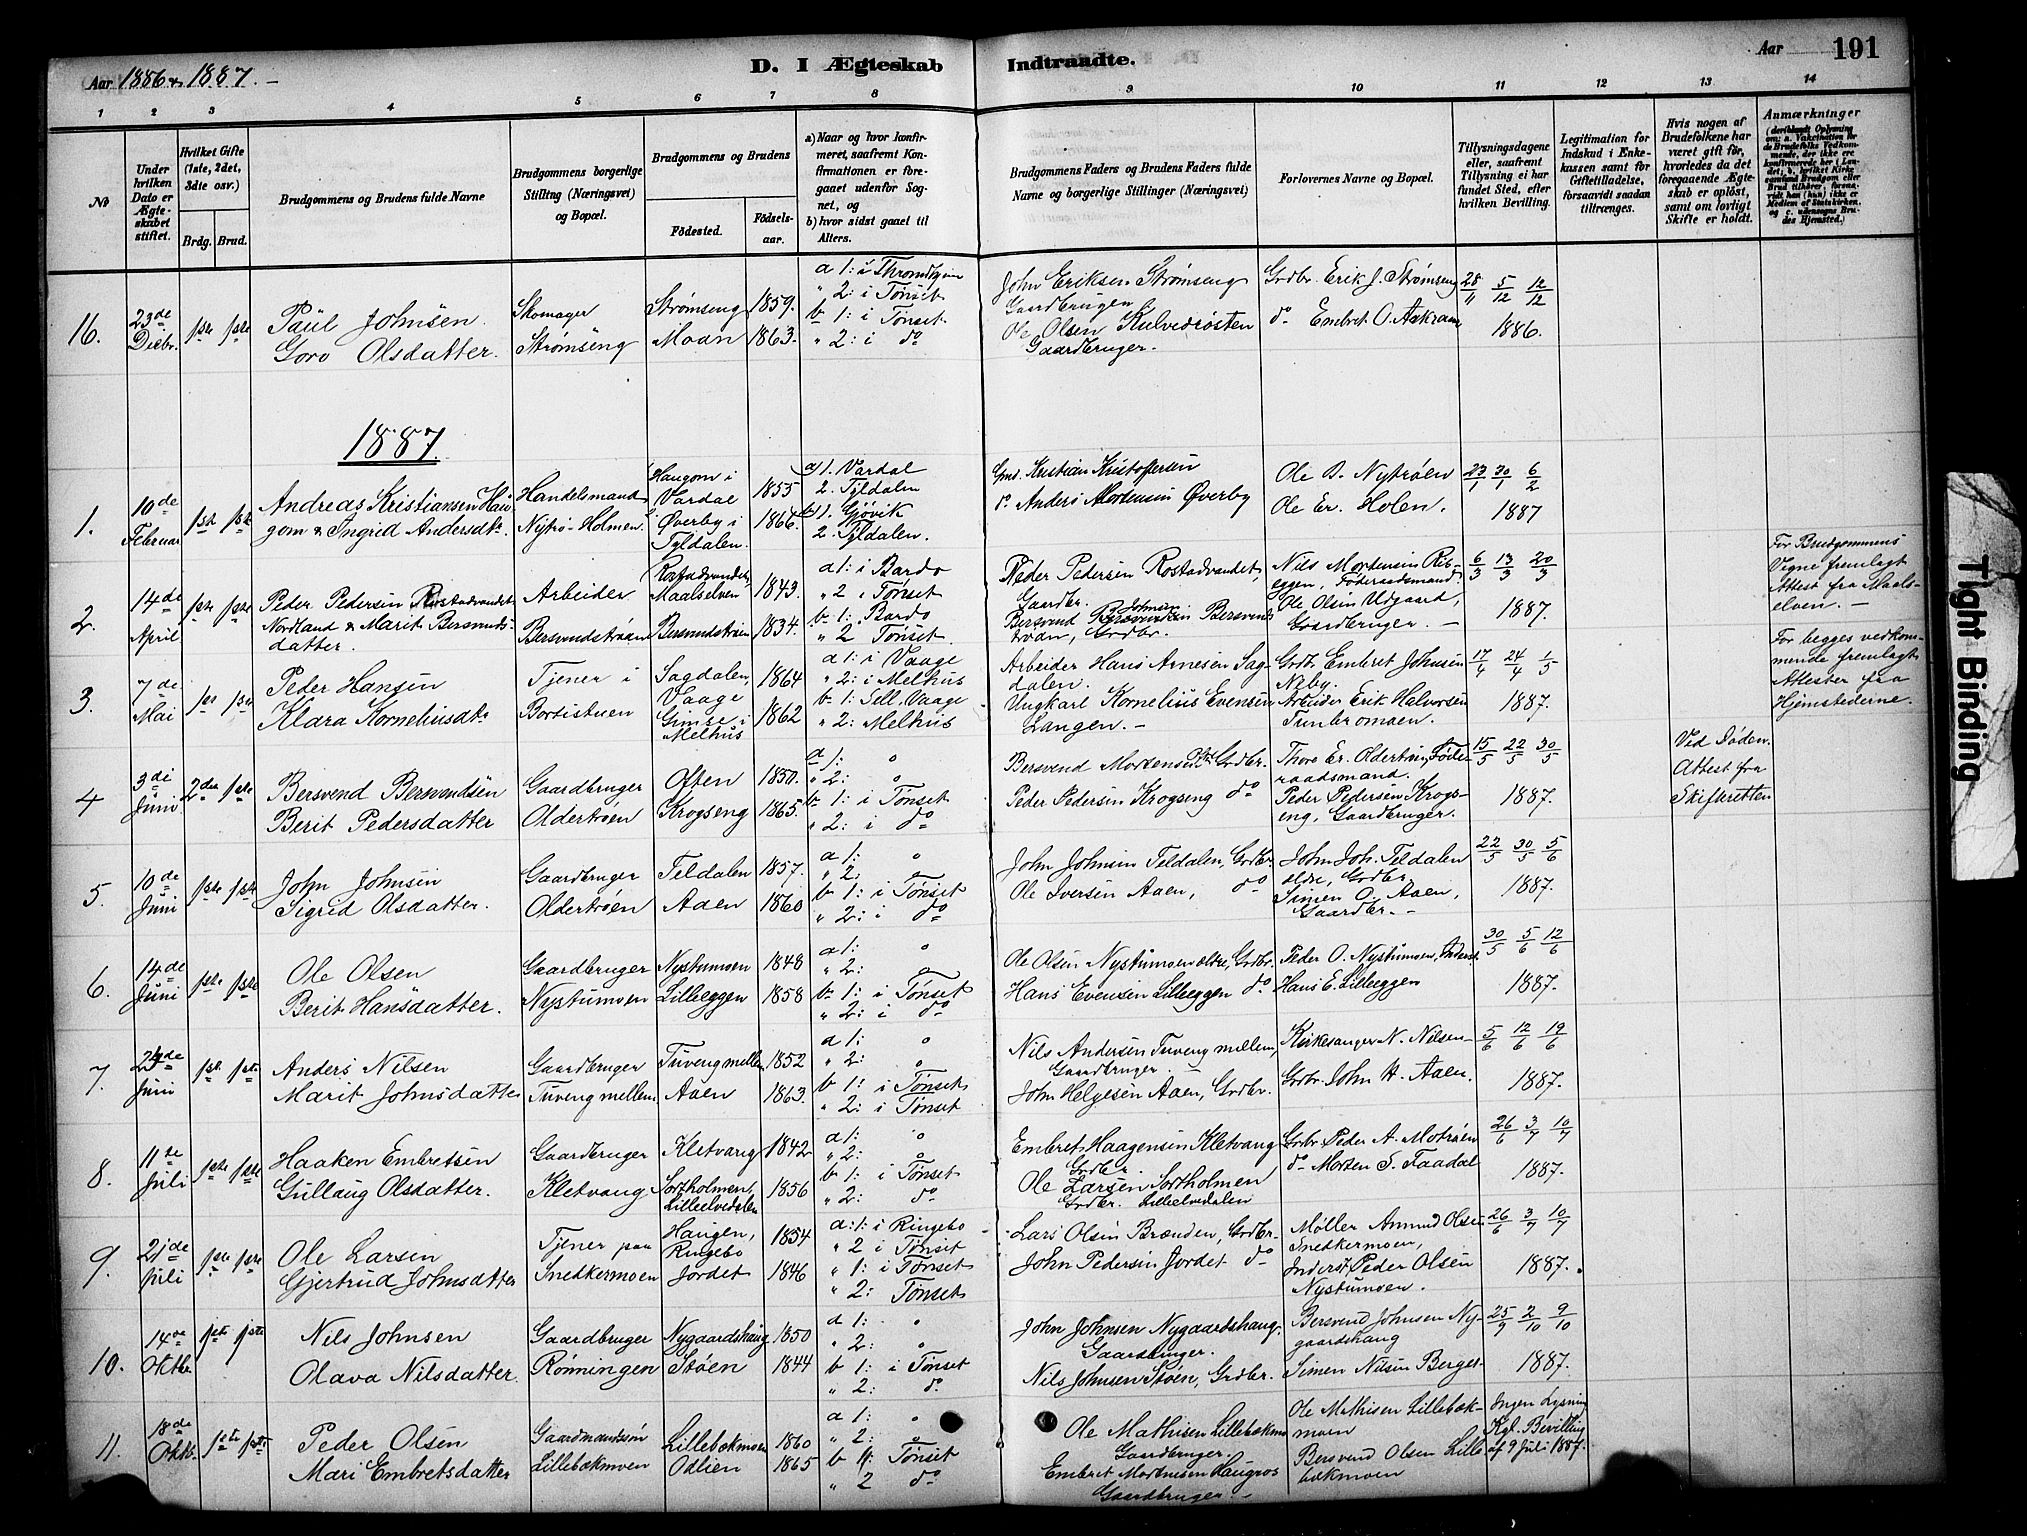 Aar 1886 & 1887. –
D. I Ægteskab Indtraadte.
Aar 191
1 2 3 4 5 6 7 8 9 10 11 12 13 14
No
Under hvilken Dato er Ægteskabet stiftet.
Hvilket Gifte (1ste, 2det, 3die osv.)
Brdg. Brud.
Brudgommens og Brudens fulde Navne
Brudgommens borgerlige Stilling (Næringsvei) og Bopæl.
Brudgommens og Brudens
Födested. Födselsaar.
a) Naar og hvor konfirmeret, saafremt Konfirmationen er foregaaet udenfor Sognet, og
b) hvor sidst gaaet til Alters.
Brudgommens Faders og Brudens Faders fulde Navne og borgerlige Stillinger (Næringsvei)
Forlovernes Navne og Bopæl.
Tillysningsdagene eller, saafremt Tillysning ei har fundet Sted, efter hvilken Bevilling.
Legitimation for Indskud i Enkekassen samt for Giftetilladelse, forsaavidt saadan tiltrænges.
Hvis nogen af Brudefolkene har været gift før, hvorledes da det foregaaende Ægteskab er oplöst, samt om lovligt Skifte er holdt.
Anmærkninger
16. 23de Decbr. 1ste 1ste
Paul Johnsen
Goro Olsdatter.
Skomager
Strømseng
Strømseng 1859.
Moan 1863.
a 1: i Throndhjem
" 2: i Tønset
b 1: i Tønset
" 2: i do
John Eriksen Strømseng
Gaardbruger
Ole Olsen Kulvedrøsten
Gaardbruger.
Grdbr. Erik J. Strømseng
do Embret O. Aakrann
28/11 5/12 12/12
1886.
1887.
1. 10de Februar 1ste 1ste
Andreas Kristiansen Haugom & Ingrid Andersdtr.
Handelsmand
Nytrø-Holmen.
Haugom i Vardal 1855
Øverby i Tyldalen. 1866.
a) 1. Vardal
2. Tyldalen
b) 1. Gjøvik
2. Tyldalen.
Gmd. Kristian Kristofersen
do. Anders Mortensen Øverby
Ole B. Nytrøen
Ole Er. Holen.
23/1 30/1 6/2
1887
2. 14de April 1ste 1ste
Peder Pedersen Rostadvandet
Nordland & Marit Bersvendsdatter.
Arbeider
Bersvendstrøen
Rostadvandet, Maalselven 1843.
Bersvendstrøen 1834.
a 1: i Bardo
" 2 i Tønset
b 1: Bardo
" 2 Tønset
Peder Pedersen Rostadvandet,
Gaardbr.
Bersvend Johnsen Bersvendstrøen, Grdbr.
Nils Mortensen Rib-
eggen, Föderaadsmand
Ole Olsen Udgaard,
Gaardbruger. –
6/3 13/3 20/3
1887.
For Brudgommens
Vigne fremlagt
Attest fra Maals-
elven. –
3. 7de Mai 1ste 1ste
Peder Hansen
Klara Korneliusdtr
Tjener i
Borsistuen
Sagdalen, Vaage 1864
Gimse i Melhus 1862
a 1: i Vaage
" 2: i Melhus
b 1: Sell, Vaage
" 2: Melhus
Arbeider Hans Arnesen Sag-
dalen.
Ungkarl Kornelius Evensen
Langen. –
Grdbr Embret Johnsen
Neby.
Arbeider Erik Halvorsen
Tunbromoen.
17/4 24/4 1/5
1887.
For begges vedkom-
mende fremlagt
Attester fra
Hjemstederne.
4 3die Juni 2den 1ste
Bersvend Bersvendsen
Berit Pedersdatter
Gaardbruger
Oldertrøen
Often 1850.
Krogseng 1865.
a 1: o
" 2: o
b 1: i Tønset
" 2: i do
Bersvend Mortensen Grdbr.
Peder Pedersen Krogseng do
Thore Er. Oldertrøen, Føde-
raadsmand.
Peder Pedersen Krogs-
eng, Gaardbruger.
15/5 22/5 30/5
1887.
Ved Døden.
Attest fra
Skifteretten
5. 10de Juni 1ste 1ste
John Johnsen
Sigrid Olsdatter.
Gaardbruger
Oldertrøen
Teldalen 1857.
Aaen 1860
a 1: o
" 2: o
b 1: i Tønset
" 2: i do
John Johnsen Teldalen, Grdbr.
Ole Iversen Aaen, do
John Joh. Teldalen
eldre, Grdbr.
Simen O. Aaen,
Gaardbr. –
22/5 30/5 5/6
1887.
6. 14de Juni 1ste 1ste
Ole Olsen
Berit Hansdatter.
Gaardbruger
Nystumoen
Nystumoen 1848
Lilleeggen 1858
a 1: o
" 2: o
b 1: i Tønset
" 2: i do
Ole Olsen Nystumoen eldre, Grdbr.
Hans Evensen Lilleeggen do
Peder O. Nystumoen, Inderst
Hans E. Lilleeggen
30/5 5/6 12/6
1887.
7. 24de Juni 1ste 1ste
Anders Nilsen
Marit Johnsdatter
Gaardbruger
Tuveng mellem
Tuveng mellem 1852
Aaen 1863.
a 1: o
" 2: o
b 1: i Tønset
" 2: i Tønset
Nils Andersen Tuveng mellem,
Gaardbruger. –
John Helgesen Aaen, Grdbr.
Kirkesanger N. Nilsen
Grdbr John H. Aaen.
5/6 12/6 19/6
1887.
8. 11te Juli 1ste 1ste
Haaken Embretsen
Gullaug Olsdatter.
Gaardbruger
Kletvang
Kletvang 1842
Sortholmen, Lilleelvedalen 1856
a 1: o
" 2: o
b 1: i Tønset
" 2: do
Embret Haagensen Kletvang
Grdbr.
Ole Larsen Sortholmen
Grdbr. Lilleelvedalen
Grdbr Peder A. Motrøen
do Morten S. Faadal
26/6 3/7 10/7
1887.
9. 21de Juli 1ste 1ste
Ole Larsen
Gjertrud Johnsdatter
Tjener paa
Snedkermoen
Haugen, Ringebo 1854
Jordet 1846
a: 1: i Ringebo
" 2 i Tønset
" 1: i Tønset
" 2: Tønset
Lars Olsen Brænden, Grdbr.
John Pedersen Jordet do
Møller Amund Olsen
Snedkermoen,
Inderst Peder Olsen
Nystumoen.
26/6 3/7 10/7
1887.
10. 14de Octbr. 1ste 1ste
Nils Johnsen
Olava Nilsdatter.
Gaardbruger
Rønningen
Nygaardshaug 1850
Støen 1844
a 1: o
" 2: o
b 1: i Tønset
" 2: do
John Johnsen Nygaardshaug.
Gaardbruger.
Nils Johnsen Støen, Grdbr.
Bersvend Johnsen Ny-
gaardshaug
Simen Nilsen Berget
25/9 2/10 9/10
1887.
11. 18de Oktbr. 1ste 1ste
Peder Olsen
Mari Embretsdatter
Gaardmandssøn
Lillebækmoen
Lillebækmoen 1860
Odlien 1865
a 1: o
" 2: o
b 1: Tønset
" 2 do
Ole Mathisen Lillebækmo
Gaardbruger.
Embret Mortensen Haugros
Gaardbruger. –
Ole Mathisen Lillebæk-
moen
Bersvend Olsen Lille-
bækmoen
Ingen Lysning
Kgl. Bevilling
af 9 Juli 1887.
Tight Binding